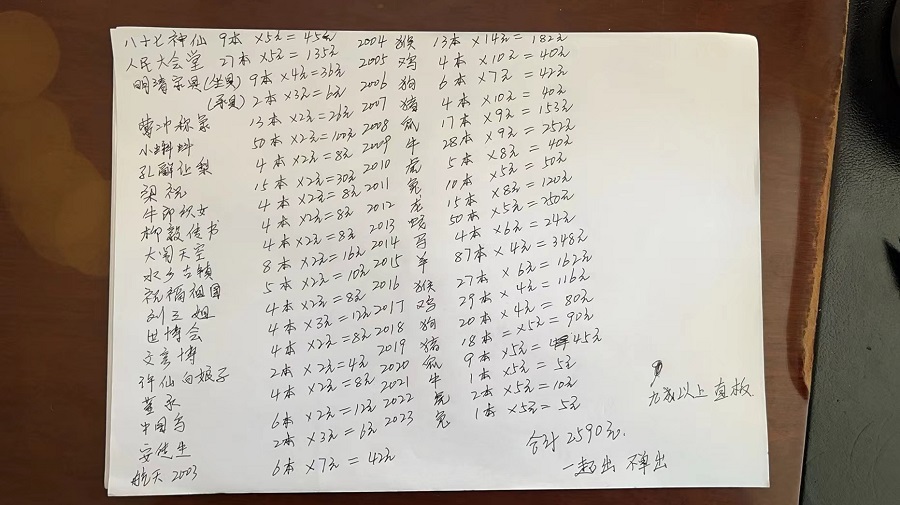 八十七神仙 9本×5元=45元 2004 猴 13本×14元=182元
人民大会堂 27本×5元=135元 2005 鸡 4本×10元=40元
明清家具(坐具) 9本×4元=36元 2006 狗 6本×7元=42元
(承具) 2本×3元=6元 2007 猪 4本×10元=40元
曹冲称象 13本×2元=26元 2008 鼠 17本×9元=153元
小蝌蚪 50本×2元=100元 2009 牛 28本×9元=252元
孔融让梨 4本×2元=8元 2010 虎 5本×8元=40元
梁祝 15本×2元=30元 2011 兔 10本×5元=50元
牛郎织女 4本×2元=8元 2012 龙 15本×8元=120元
柳毅传书 4本×2元=8元 2013 蛇 50本×5元=250元
大闹天空 4本×2元=8元 2014 马 4本×6元=24元
水乡古镇 8本×2元=16元 2015 羊 87本×4元=348元
祝福祖国 5本×2元=10元 2016 猴 27本×6元=162元
刘三姐 4本×2元=8元 2017 鸡 29本×4元=116元
世博会 4本×3元=12元 2018 狗 20本×4元=80元
文彦博 4本×2元=8元 2019 猪 18本×5元=90元
许仙白娘子 2本×2元=4元 2020 鼠 9本×5元=45元
董永 4本×2元=8元 2021 牛 1本×5元=5元
中国鸟 6本×2元=12元 2022 虎 2本×5元=10元
安徒生 2本×3元=6元 2023 兔 1本×5元=5元
航天2003 6本×7元=42元
九成以上直板
合计2590元.
一起出 不单出